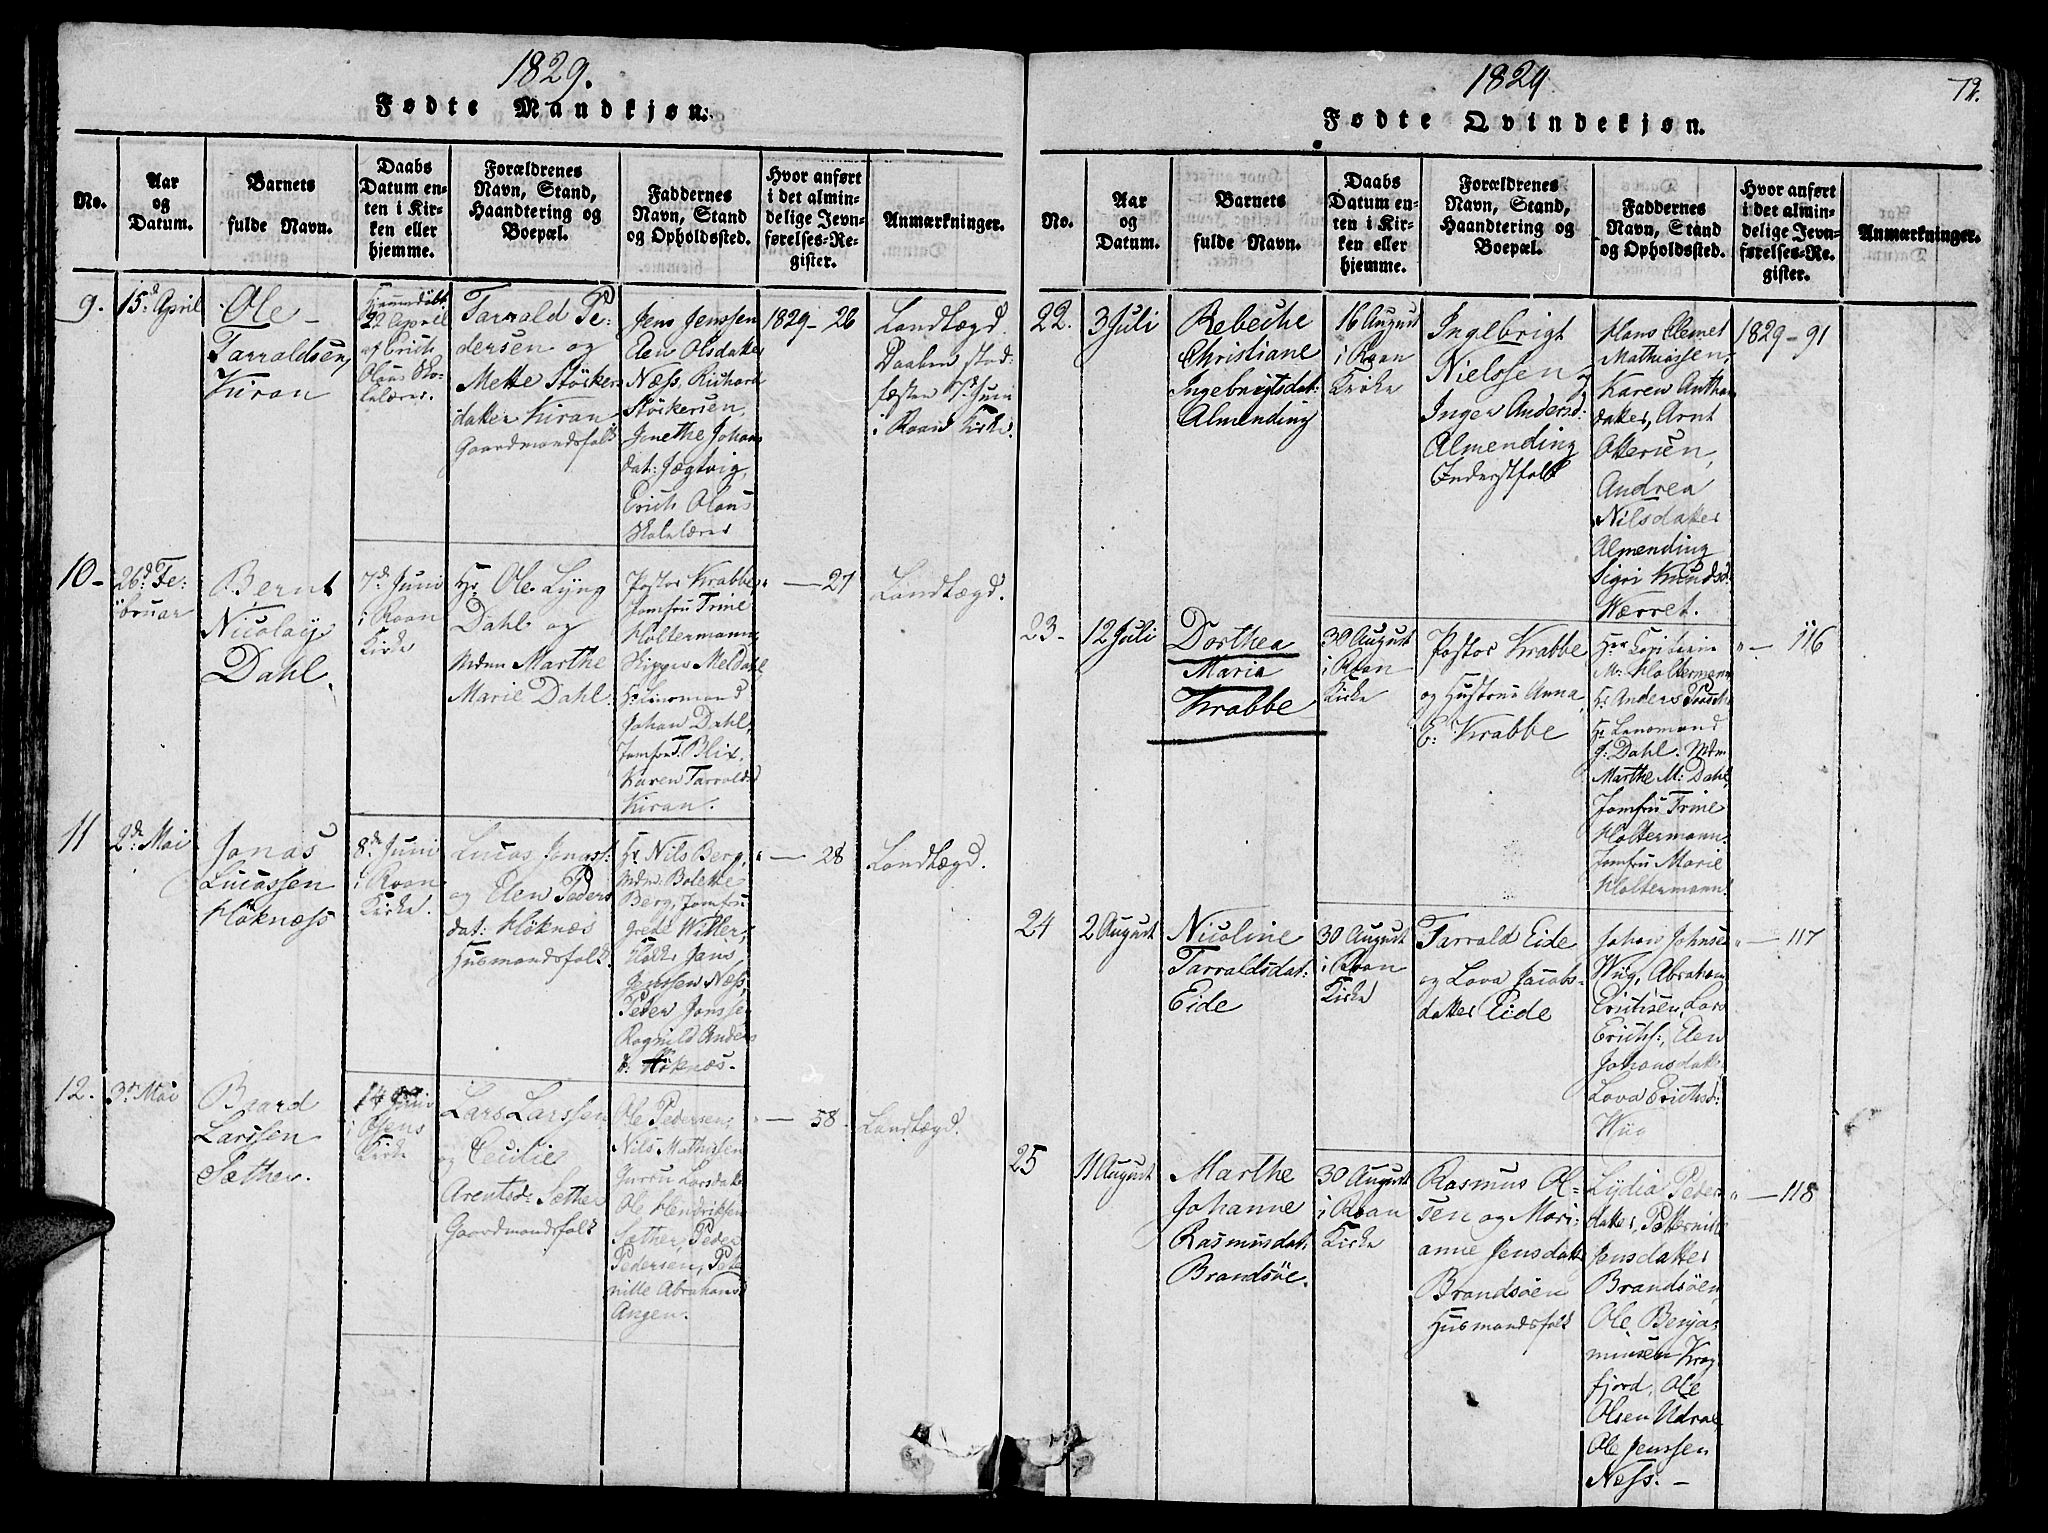 1829.
Fødte Mandkjøn.
No.
Aar
og
Datum.
Barnets
fulde Navn.
Daabs
Datum en-
ten i Kir-
ken eller
hjemme.
Forældrenes
Navn, Stand,
Haandtering og
Boepæl.
Faddernes
Navn, Stand
og Opholdssted.
Hvor anført
i det almin-
delige Jevn-
førelses-Re-
gister.
Anmærkninger.
9.
15d April
Ole
Tarraldsen,
Kiran
Hjemdøbt
22 April
af Erich
Olaus Sko-
lelærer.
Tarrald Pe-
dersen og
Mette Störkers-
datter Kiran
Gaardmandsfolk
Jens Jenssen
Elen Olsdatter
Næss. Richard
Störkersen,
Jenethe Johans
dat: Jægtvig,
Erich Olaus
Skolelærer
1829-26
Landtægd.
Daaben stad-
fæsten 7d Juni
i Roan Kirke.
10-
26d Fe-
bruar
Bernt
Nicolay
Dahl.
7d Juni
i Roan
Kirke
Hr Ole Lyng
Dahl og
Mdm Marthe
Marie Dahl.
Pastor Krabbe
Jomfru Trine
Holtermann,
Skipper Meldahl
Hr Lensmand
Johan Dahl,
Jomfru Blix,
Karen Tarralds
Kiran.
" - 27
Landtægd.
11
2de Mai
Jonas
Lucassen
Höknæss
8de Juni
i Roan
Kirke.
Lucas Jonass:
og Elen Peders
dat: Höknæs
Husmandsfolk.
Hr Nils Berg,
Mdm: Bolette
Berg, Jomfru
Grete Witter,
Jans
Jenssen Næss,
Peder Jonssen
Ragnild Anders
Höknæs.
" - 28
Landtægd.
12.
3de Mai
Baard
Larssen
Sæther.
14 Juni
i Osens
Kirke
Lars Larssen
og Cecilie
Arentsd: Sæther
Gaardmandsfolk
Ole Pedersen,
Nils Mathissen
Gurru Larsdatter
Ole Hendriksen
Sæther, Peder
Pedersen, Pet-
nille Abrahams
Angen.
" - 58.
Landtægd.
1829.
79.
Fødte Qvindekjøn.
No.
Aar
og
Datum.
Barnets
fulde Navn.
Daabs
Datum en-
ten i Kir-
ken eller
hjemme.
Forældrenes
Navn, Stand,
Haandtering og
Boepæl.
Faddernes
Navn, Stand
og Opholdssted.
Hvor anført
i det almin-
delige Jevn-
førelses-Re-
gister.
Anmærkninger.
22.
3 Juli
Rebecke
Christiane
Ingebrigtsdat:
Almending
16 August
i Roan
Kirke
Ingebrigt
Nielssen og
Inger Andersd:
Almending
Inderstfolk
Hans Clemet
Mathiassen,
Karen Anthon
datter, Arnt
Ottersen,
Andrea
Nilsdatter
Almending
Sigri Knudsd:
Wærret.
1829-91
23-
12 Juli
Dorthea
Maria
Krabbe
30 August
i Roan
Kirke
Pastor Krabbe
og Hustrue Anna
E: Krabbe
M: Holtermann
Hr Anders
Hr Lensmand
J: Dahl. Mdm
Marthe M: Dahl,
Jomfru Trine
Holtermann.
Jomfru Marie
Holtermann.
" - 116
24
2 August
Nicoline
Tarraldsdat:
Eide
30 August
i Roan
Kirke
Tarrald Eide
og Lova Jacobs-
datter Eide
Johan Johnsen
Wiig, Abraham
Erichsen, Lars
Erichs:, Elen
Johansdatter
Lova Erichsd:
Wiig
" - 117
25
11 August
Marthe
Johanne
Rasmusdat:
Brandsöe.
30 August
i Roan
Kirke
Rasmus Ol-
sen og Mari-
anne Jensdatter
Brandsöen
Husmandsfolk
Lydia Peders
datter, Petternille
Jensdatter
Brandsöen,
Ole Benja-
minsen Krog
fjord, Ole
Olsen Udroe,
Ole Jenssen
Ness. -
" - 118